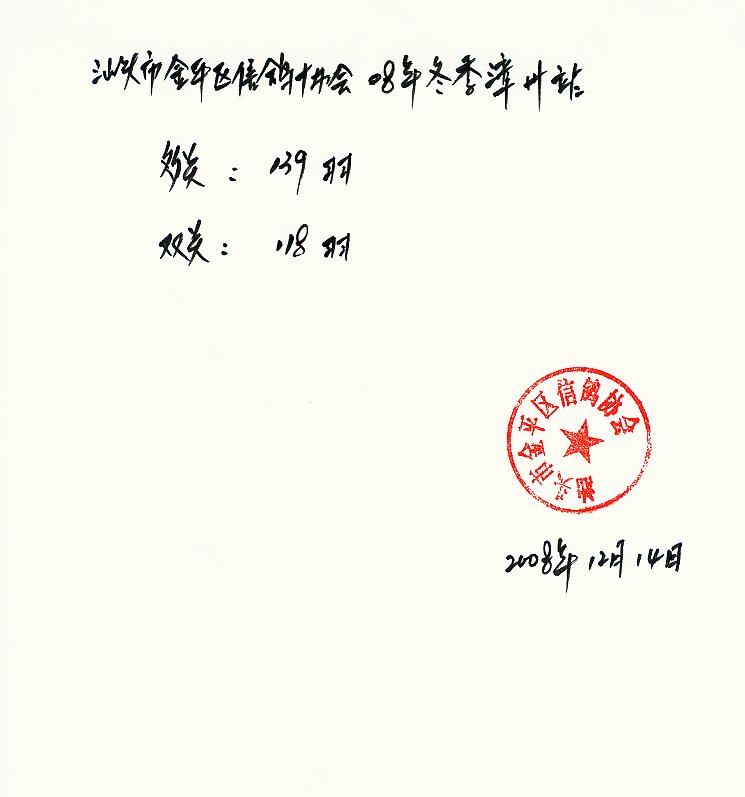 汕头市金平区信鸽协会 08年冬季漳州站
多关: 139羽
双关: 118羽
汕头市金平区信鸽协会
2008年12月14日